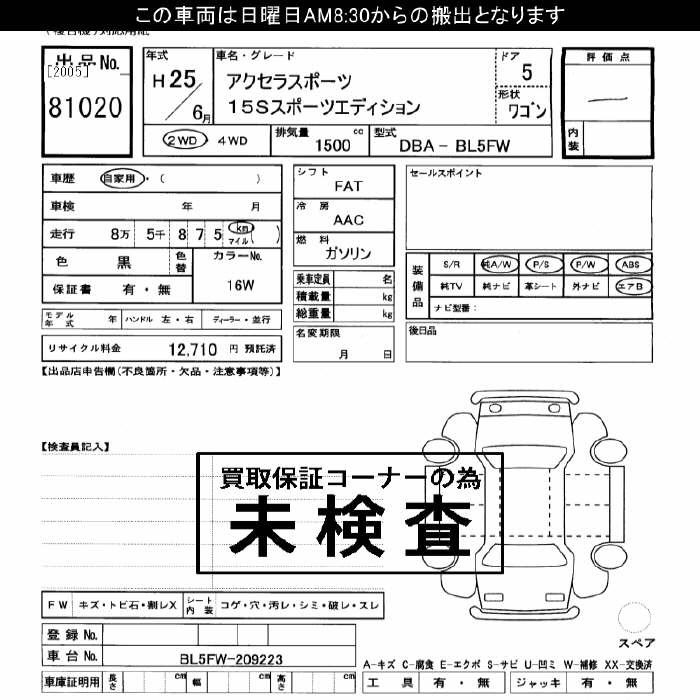 この車両は日曜日AM8:30からの搬出となります
出品No.
[2005]
81020
年式
H25/6月
車名・グレード
アクセラスポーツ
15Sスポーツエディション
ドア
5
形状
ワゴン
評価点
内装
2WD・4WD
排気量 1500 cc
型式 DBA-BL5FW
車歴 自家用・( )
車検 年 月
走行 8万 5千 8 7 5 km マイル ( )
色 黒
色替
カラーNo.
16W
保証書 有・無
シフト
FAT
冷房
AAC
燃料
ガソリン
乗車定員 名
積載量 kg
総重量 kg
名変期限
月 日
セールスポイント
装備品
S/R 純A/W P/S P/W ABS
純TV 純ナビ 革シート 外ナビ エアB
ナビ型番:
後日品
モデル年式 年 ハンドル 左・右 ディーラー・並行
リサイクル料金 12,710 円 預託済
【出品店申告欄(不良箇所・欠品・注意事項等)】
【検査員記入】
買取保証コーナーの為
未検査
FW キズ・トビ石・割レX
シート内装 コゲ・穴・汚レ・シミ・破レ・スレ
登録No.
車台No. BL5FW-209223
車庫証明用 長さ cm 幅 cm 高さ cm
スペア
A-キズ C-腐食 E-エクボ S-サビ U-凹ミ W-補修 XX-交換済
工具 有・無 ジャッキ 有・無